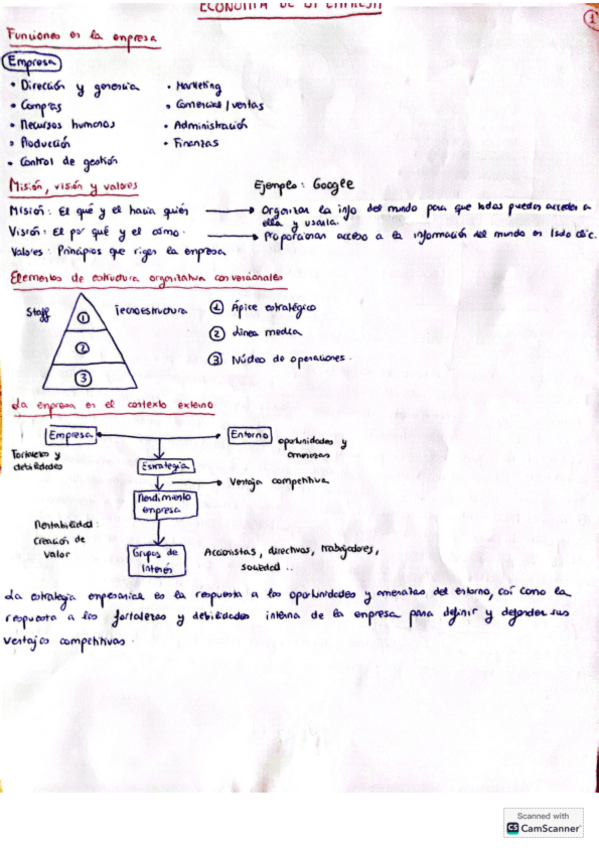 ECONOMIA DE LA EMPRESA
1
Funciones en la empresa
Empresa
• Dirección y gerencia
• Marketing
• Compras
• Comercial / ventas
• Recursos humanos
• Administración
• Producción
• Finanzas
• Control de gestión
Misión, visión y valores
Ejemplo: Google
Misión: El qué y el hacia quién → Organizar la info del mundo para que todos puedan acceder a
ella y usarla.
Visión: El por qué y el cómo. → Proporcionar acceso a la información del mundo en 1 solo clic.
Valores: Principios que rigen la empresa
Elementos de estructura organizativa convencionales
Staff
Tecnoestructura
1
2
3
① Ápice estratégico
② Linea media
③ Núcleo de operaciones.
La empresa en el contexto externo
Empresa
Entorno
oportunidades y
amenazas
Fortalezas y
debilidades
Estrategia
→ Ventaja competitiva
Rendimiento
empresa
Rentabilidad:
Creación de
valor
Grupos de
Interés
Accionistas, directivos, trabajadores,
sociedad..
La estrategia empresarial es la respuesta a las oportunidades y amenazas del entorno, así como la
respuesta a las fortalezas y debilidades interna de la empresa para definir y defender sus
ventajas competitivas.
Scanned with
CS CamScanner